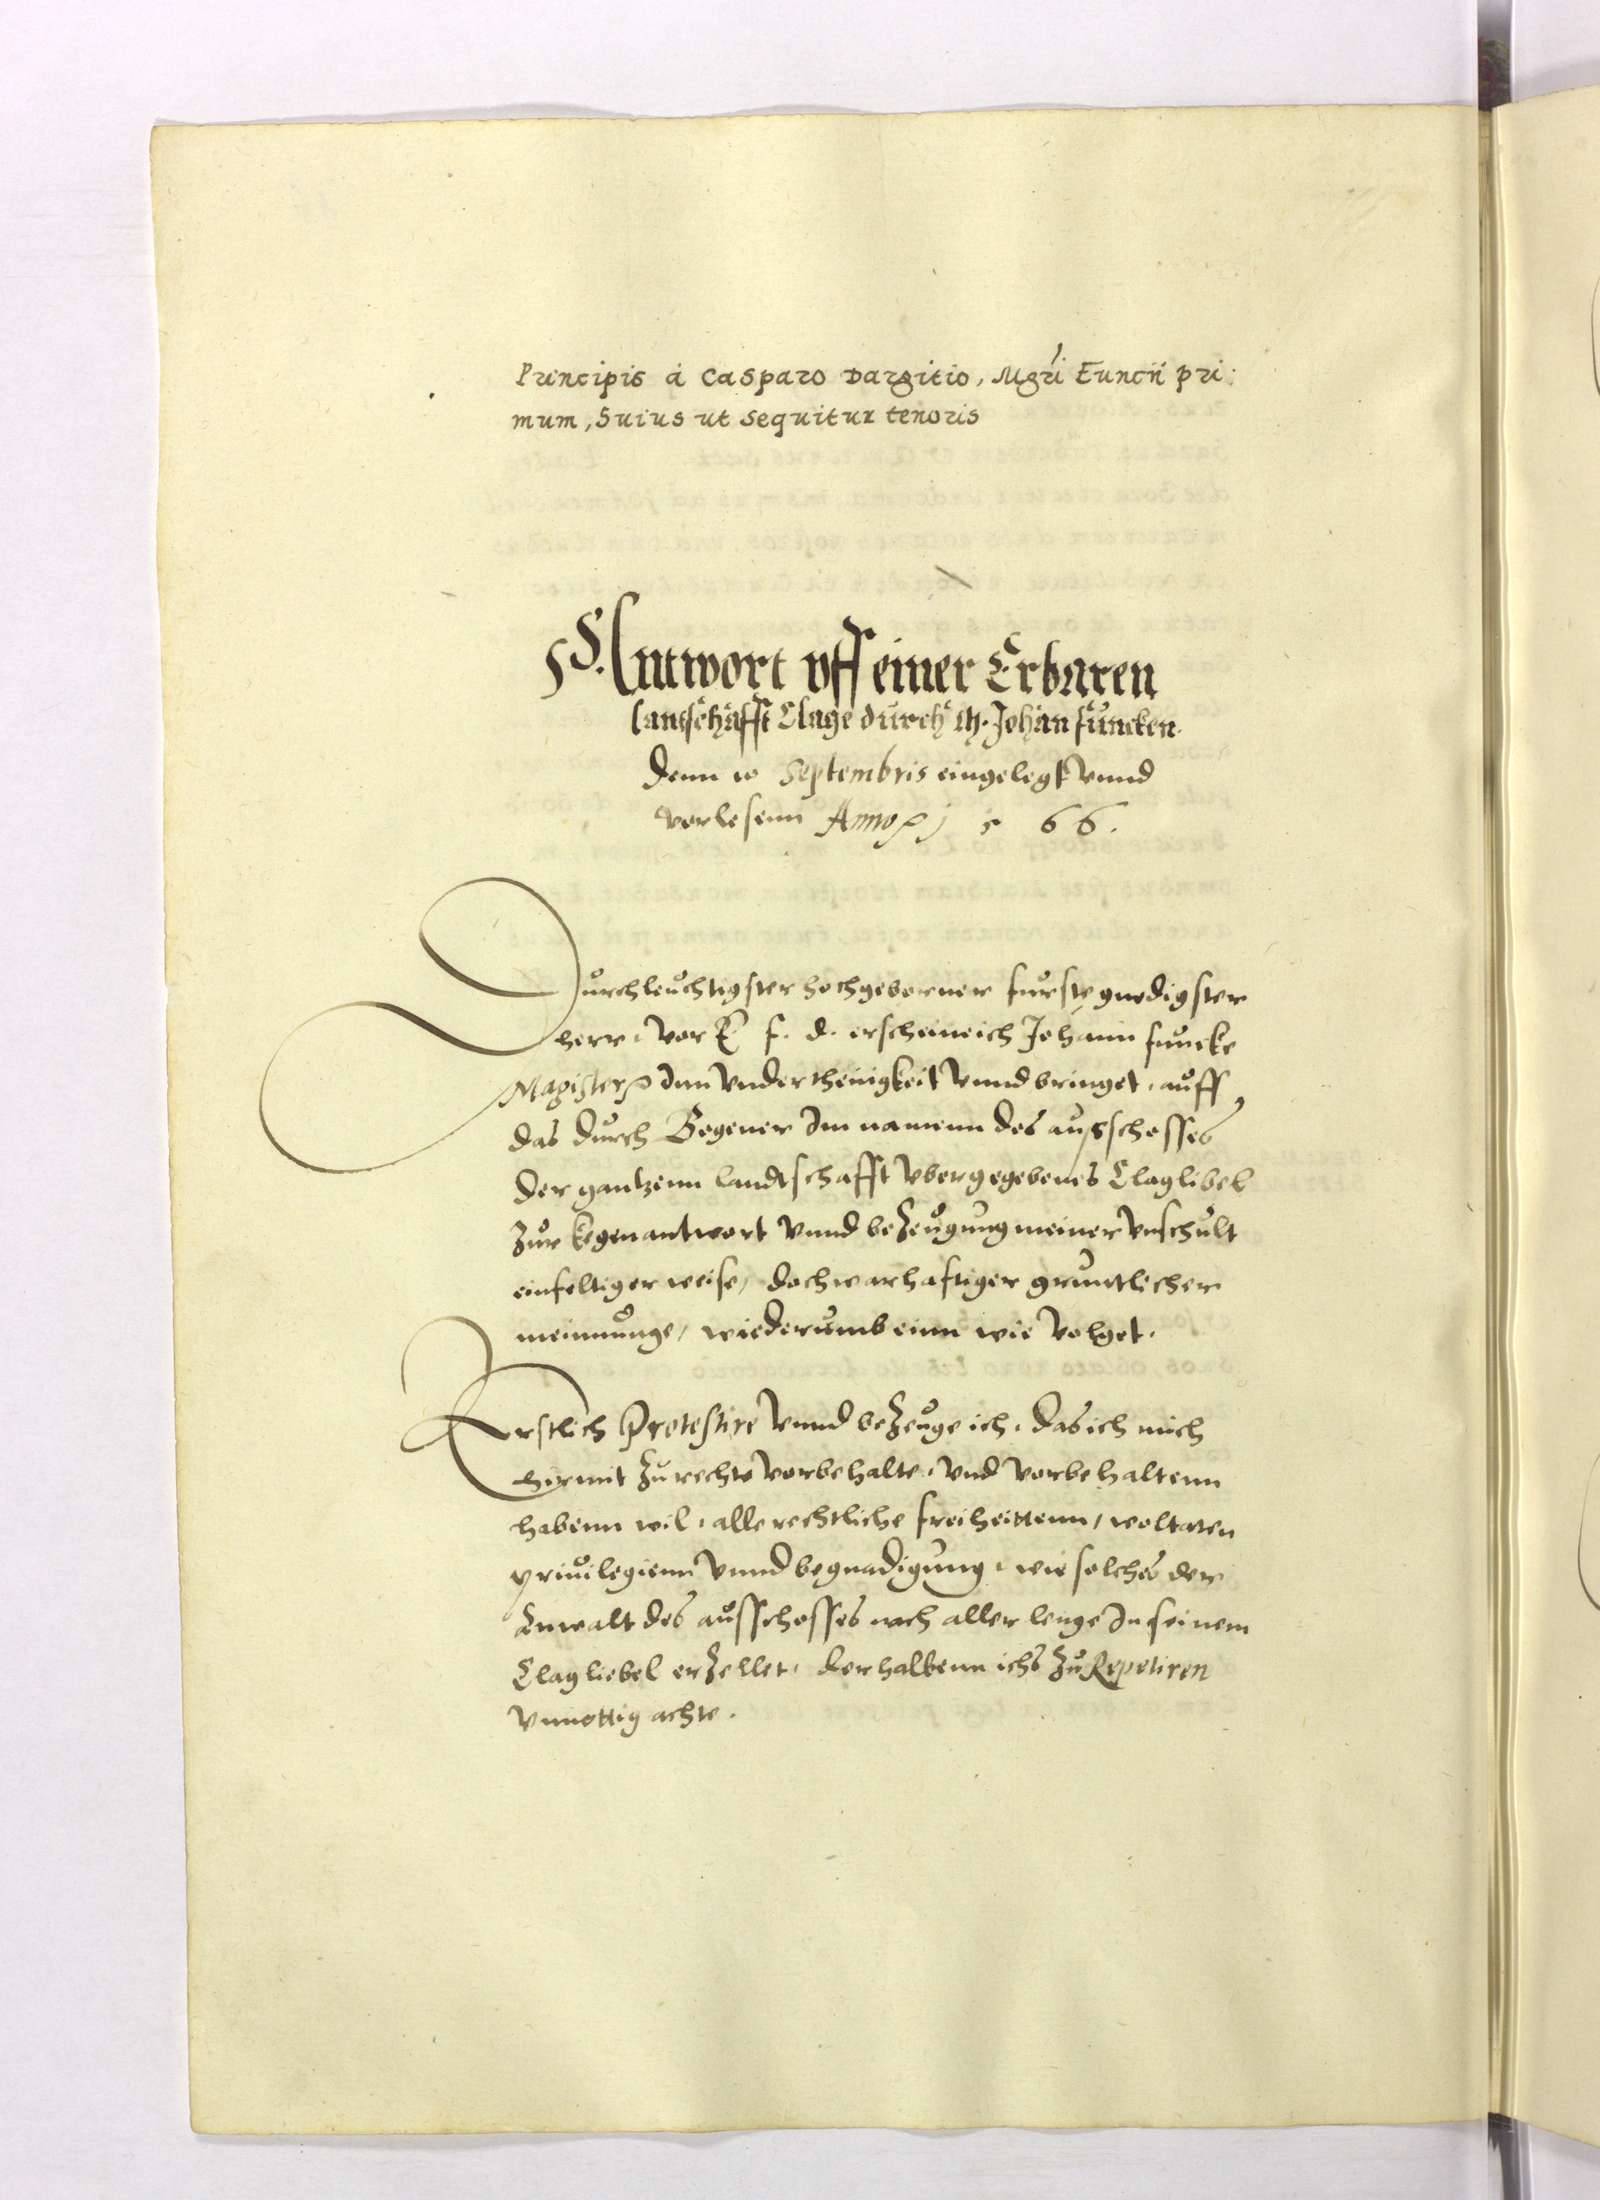 Principis á Casparo Dargitio, Mgri Funcij pri:
mum, Huius ut sequitur tenoris
Antwort vff einer Erbaren
lantschafft Clage durch M. Johan Funcken.
denn 10 Septembris eingelegt vnnd
vorlesenn Anno 1 5 66.
Durchleuchtigster hochgeborner furst gnedigster
herr, vor E f. d. erscheine ich Johann Funcke
Magister Inn vnderthenigkeit vnnd bringet, auff
das durch Gegener Im namenn des außschosses
der gantzenn landtschafft vbergegebenes Claglibel
zur kegenantwort vnnd bezeugung meiner vnschult
einfeltiger weise, doch warhaftiger gruntlicher
meinnunge, wiederumb einn wie volget.
Erstlich Protestire vnnd bezeuge ich, das ich mich
hirmit zu rechte vorbehalte, vnd vorbehaltenn
habenn wil, alle rechtliche freiheittenn, woltaten
priuilegienn vnnd begnadigung, wie solches der
Anwalt des ausschosses nach aller lenge In seinem
Clagliebel erzellet, derhalbenn ichs zu Repetiren
vnnottig achte.